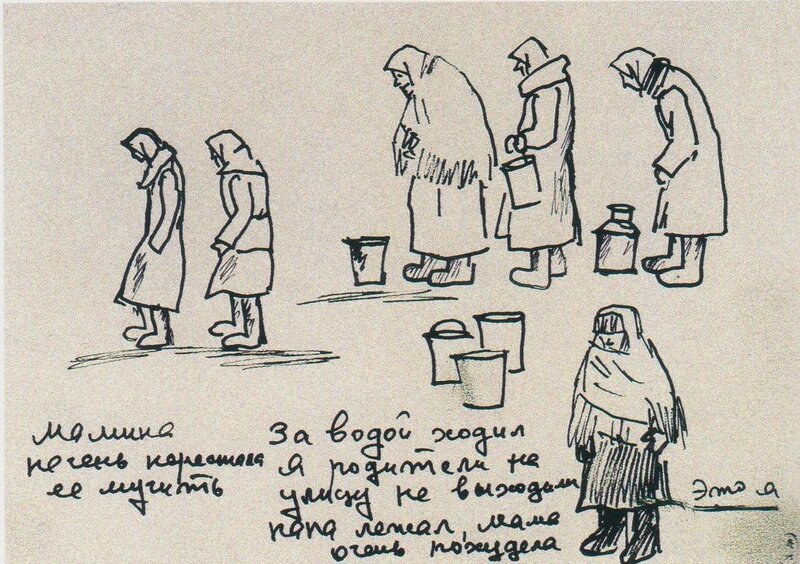 мамина
печень перестала
ее мучить
За водой ходил
я родители на
улицу не выходили
папа лежал, мама
очень похудела
Это я